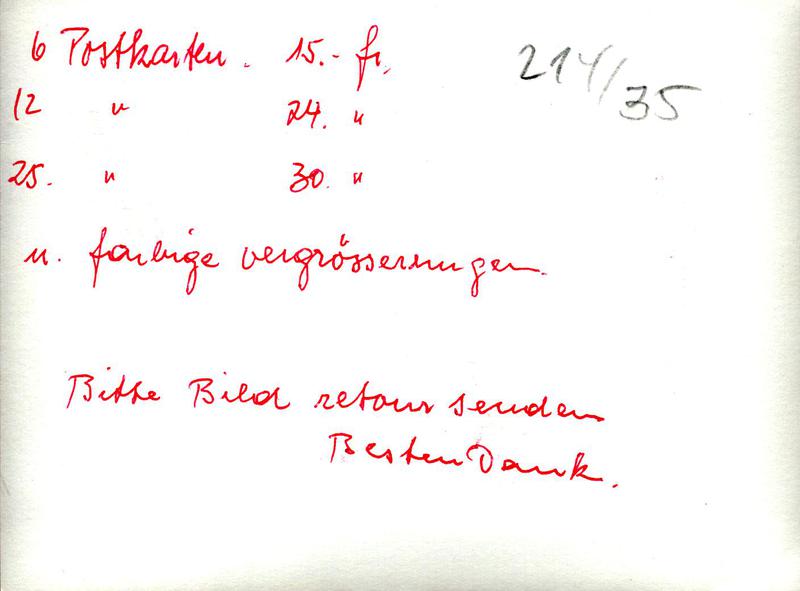 6 Postkarten. 15.- fr.
214/35
12 " 24. "
25. " 30. "
u. farbige vergrösserungen.
Bitte Bild retour senden
Besten Dank.